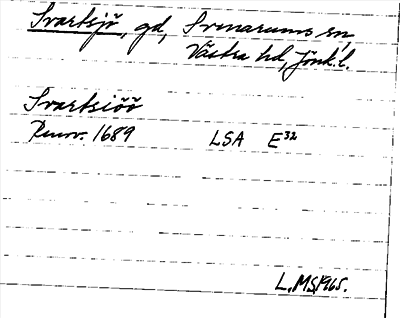 Svartsjö, gd, Svenarums sn,
Västra hd, Jönk.l.
Svartsiöö
Renov. 1689 LSA E32
L.MS.1965.